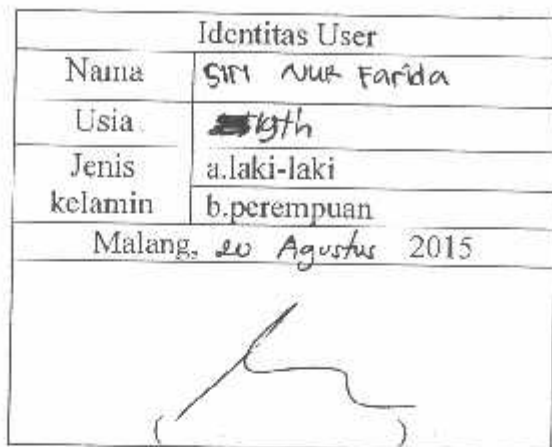 Identitas User
Nama Siti Nur Farida
Usia 19th
Jenis kelamin a.laki-laki
b.perempuan
Malang, 20 Agustus 2015
( )